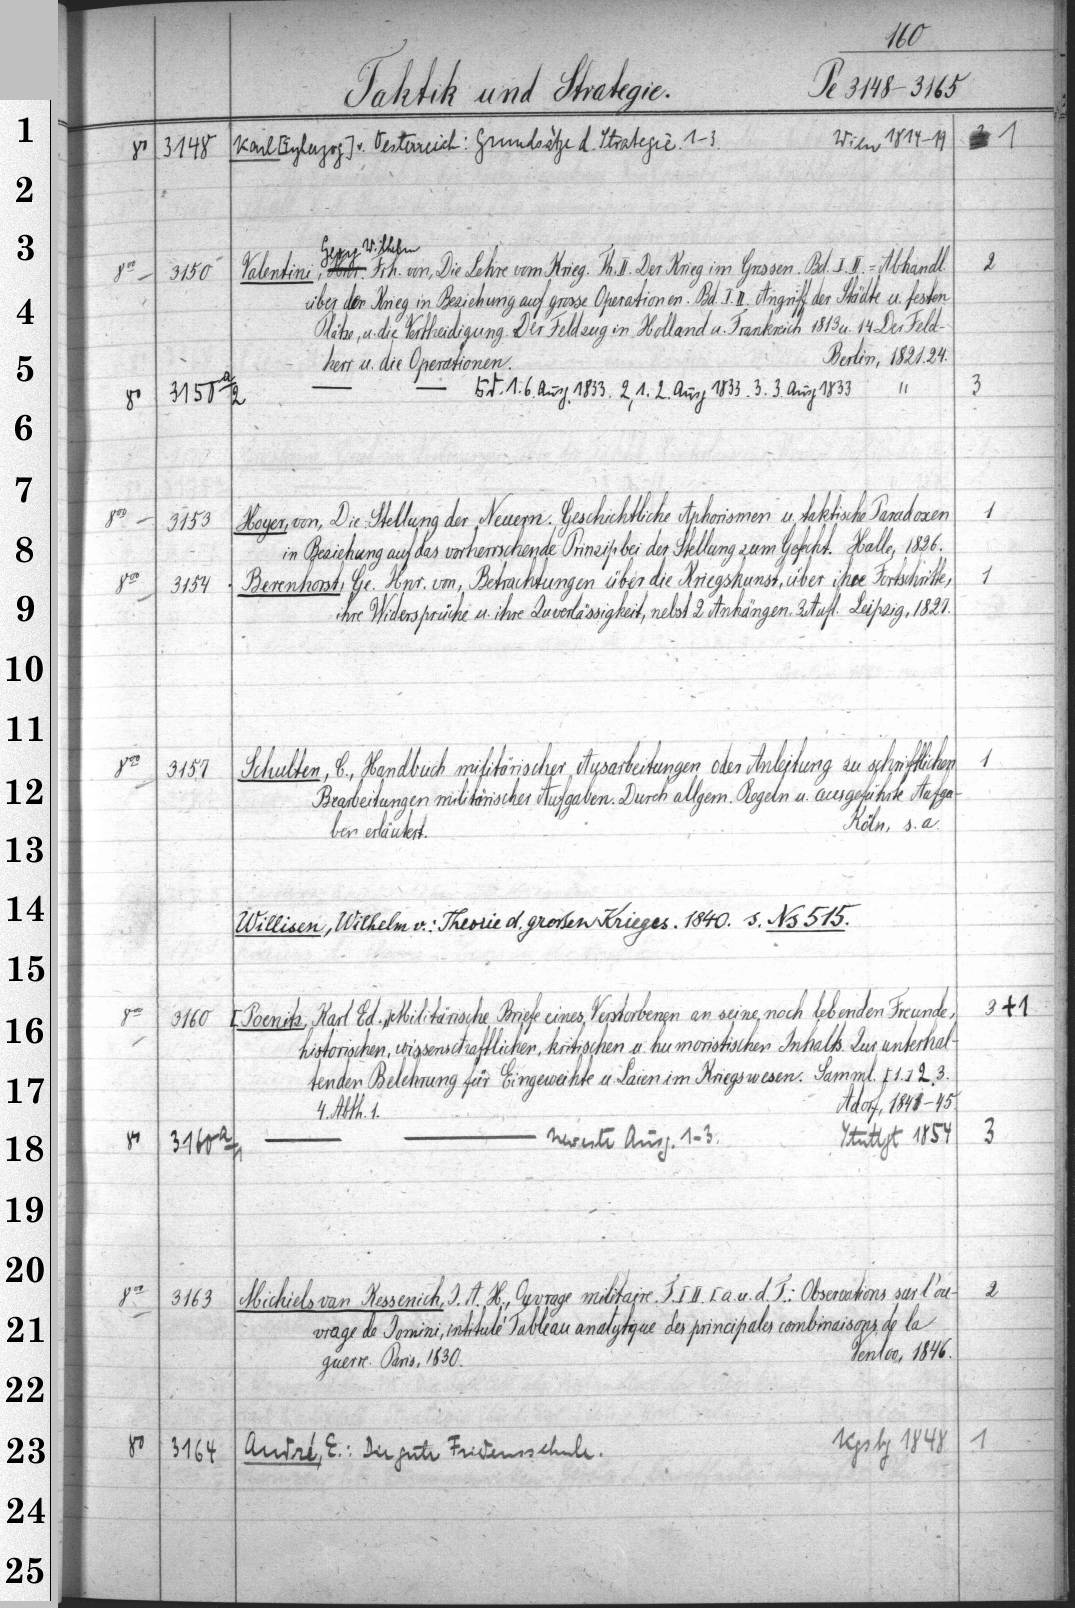 160
Taktik und Strategie. Pe 3148-3165
1
8° 3148 Karl [Erzherzog] v. Oesterreich: Grundsätze d. Strategie. 1-3. Wien 1814-19 1
2
3
Georg Wilhelm
8vo 3150 Valentini, Frh. von, Die Lehre vom Krieg. Th. II. Der Krieg im Grossen. Bd. I. II. = Abhandl. 2
4
über den Krieg in Beziehung auf grosse Operationen. Bd. I. II. Angriff der Städte u. festen
Plätze, u. die Vertheidigung. Der Feldzug in Holland u. Frankreich 1813 u. 14. Der Feld-
5
herr u. die Operationen. Berlin, 1821.24.
8° 3150 a/2 — — Bd. 1. 6. Ausg. 1833. 2,1. 2. Ausg 1833. 3. 3. Ausg 1833 " 3
6
7
8vo 3153 Hoyer, von, Die Stellung der Neuern. Geschichtliche Aphorismen u. taktische Paradoxen 1
8
in Beziehung auf das vorherrschende Prinzip bei der Stellung zum Gefecht. Halle, 1826.
8vo 3154 Berenhorst, Ge. Hnr. von, Betrachtungen über die Kriegskunst, über ihre Fortschritte, 1
9
ihre Widersprüche u. ihre Zuverlässigkeit, nebst 2 Anhängen. 3 Aufl. Leipzig, 1827.
10
11
8vo 3157 Schulten, C., Handbuch militärischer Ausarbeitungen oder Anleitung zu schriftlichen 1
12
Bearbeitungen militärischer Aufgaben. Durch allgem. Regeln u. ausgeführte Aufga-
ben erläutert. Köln, s. a.
13
14
Willisen, Wilhelm v.: Theorie d. großen Krieges. 1840. s. Ns 515.
15
8vo 3160 [Poenitz, Karl Ed., Militärische Briefe eines Verstorbenen an seine noch lebenden Freunde, 3+1
16
historischen, wissenschaftlichen, kritischen u. humoristischen Inhalts. Zur unterhal-
17
tenden Belehrung für Eingeweihte u. Laien im Kriegswesen. Samml. I 1. 2. 3.
4. Abth. 1. Adorf, 1841-45.
18
8° 3160 a/1 — — neueste Ausg. 1-3. Stuttgt 1854 3
19
20
8vo 3163 Michiels van Kessenich, J. A. H., Ouvrage militaire. T. I II. I a. u. d. T.: Observations sur l'ou- 2
21
vrage de Jomini, intitulé Tableau analytique des principales combinaisons de la
guerre. Paris, 1830. Venloo, 1846.
22
23
8° 3164 André, E.: Die gute Friedensschule. Kgsbg 1848 1
24
25